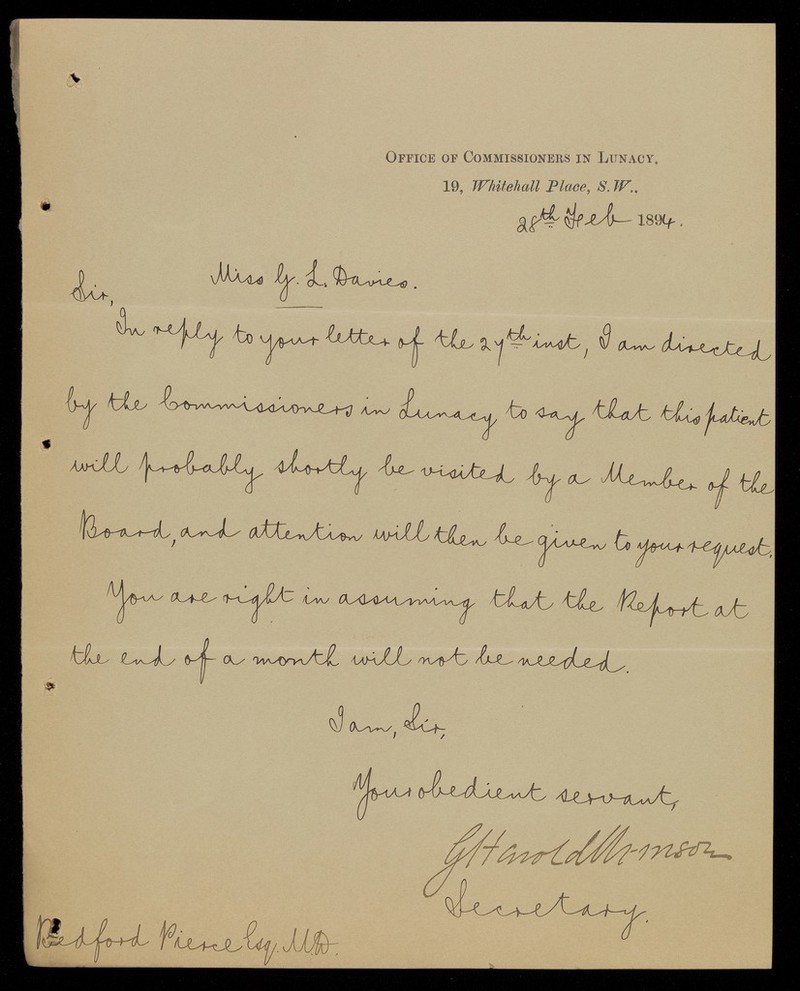 OFFICE OF COMMISSIONERS IN LUNACY,
19, Whitehall Place, S.W..
28th Feb 1894.
Miss G. L. Davies.
Sir,
In reply to your letter of the 27th inst, I am directed
by the Commissioners in Lunacy to say that this patient
will probably shortly be visited by a Member of the
Board, and attention will then be given to your request.
You are right in assuming that the Report at
the end of a month will not be needed.
I am, Sir,
Your obedient servant,
G Harold Urmson
Secretary.
Bedford Pierce Esq. M.D.